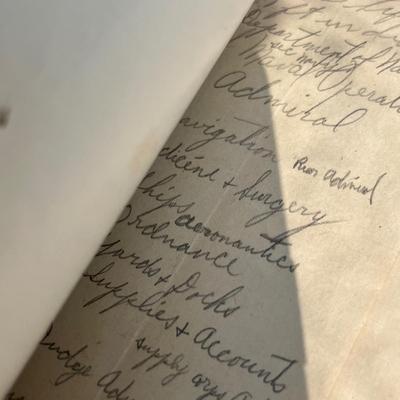 Department of
Naval Operat
Admiral
avigation Rear Admiral
dicine & Surgery
Ships aeronautics
Ordnance
Yards & Docks
Supplies & Accounts
supply corps
Judge Adv